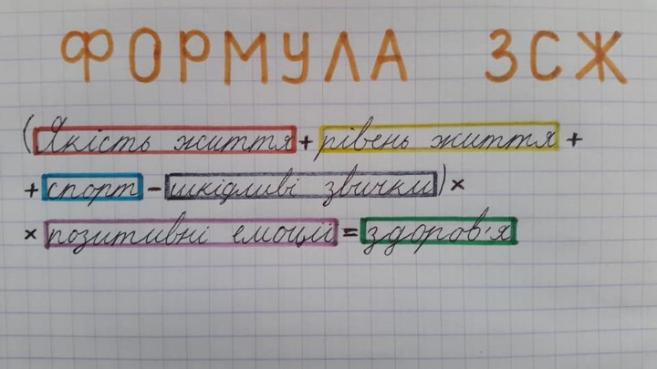 ФОРМУЛА ЗСЖ
(Якість життя + рівень життя +
+ спорт - шкідливі звички) ×
× позитивні емоції = здоров'я